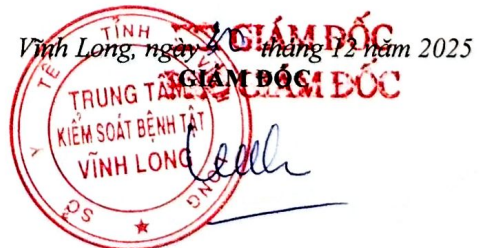 Vĩnh Long, ngày 20 tháng 12 năm 2025
GIÁM ĐỐC
GIÁM ĐỐC
GIÁM ĐỐC
SỞ Y TẾ TỈNH VĨNH LONG
TRUNG TÂM
KIỂM SOÁT BỆNH TẬT
VĨNH LONG